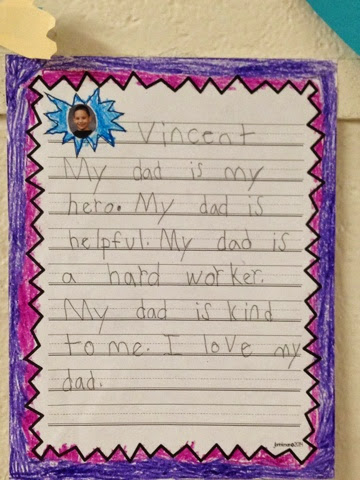 Vincent
My dad is my
hero. My dad is
helpful. My dad is
a hard worker.
My dad is kind
to me. I love my
dad.